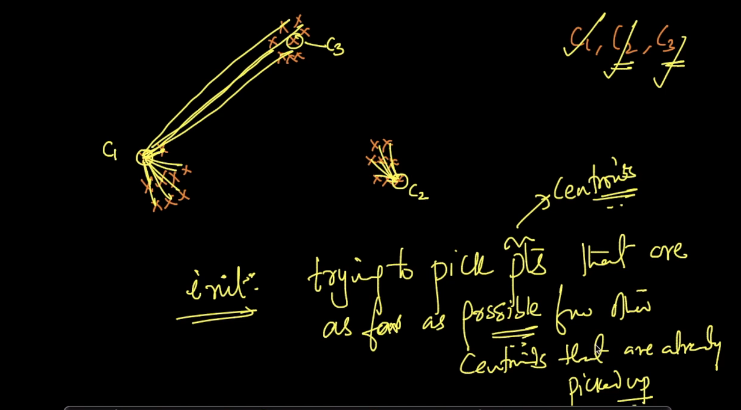 C₁, C₂, C₃
C₃
C₁
C₂
Centroids
init:
trying to pick pts that are
as far as possible from other
Centroids that are already
picked up